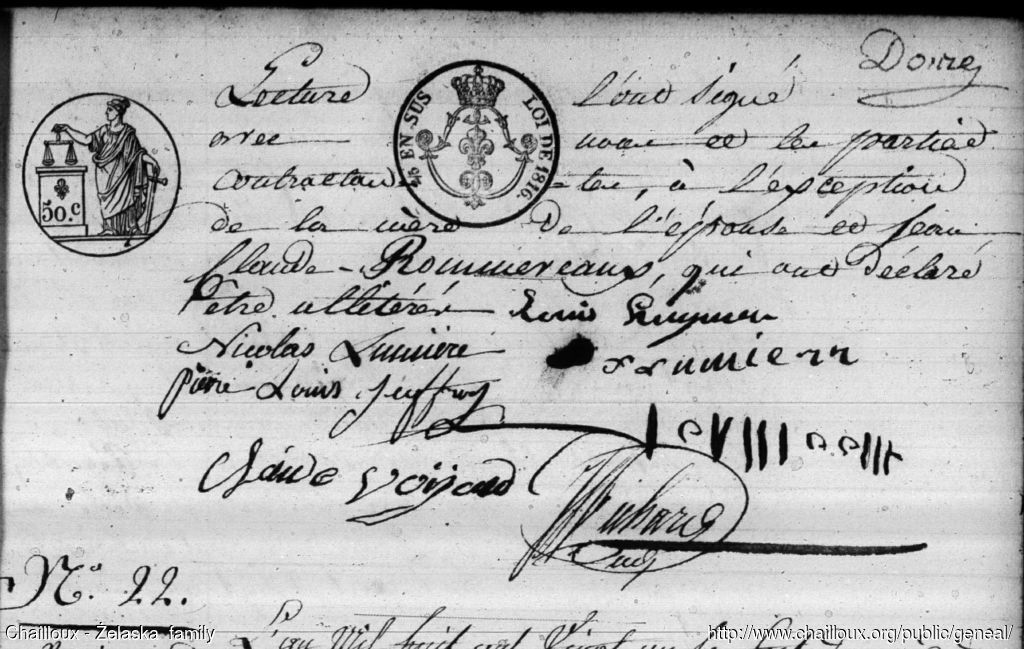 Douze
50.c
¼ EN SUS LOI DE 1816.
Lecture l'ont signé
avec nous et les parties
contractan-tes, à l'exception
de la mère de l'épouse et Jean
Claude Rommeveaux, qui ont déclaré
être illitérés Louis
Nicolas Lumière
Pierre Louis Jeuffroy
Claude
N.° 22.
L'an mil huit cent vingt un le
Chailloux - Żelaska family
http://www.chailloux.org/public/geneal/